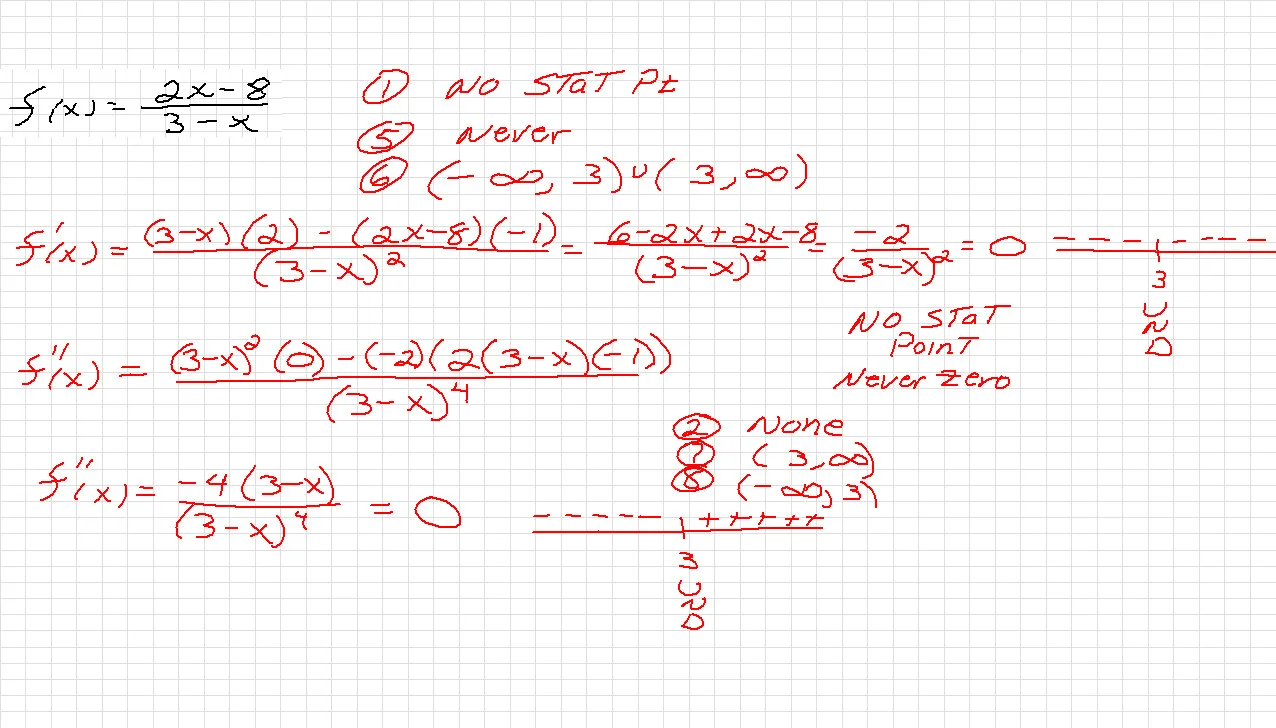 f(x) = (2x-8)/(3-x)
① NO STAT Pt
⑤ Never
⑥ (-∞, 3) ∪ (3, ∞)
f'(x) = ((3-x)(2) - (2x-8)(-1))/(3-x)^2 = (6-2x+2x-8)/(3-x)^2 = -2/(3-x)^2 = 0 - - - - - - -
3
UND
NO STAT
Point
Never zero
f''(x) = ((3-x)^2 (0) - (-2)(2(3-x)(-1)))/(3-x)^4
② None
⑦ (3, ∞)
⑧ (-∞, 3)
f''(x) = -4(3-x)/(3-x)^4 = 0 - - - - - + + + + +
3
UND